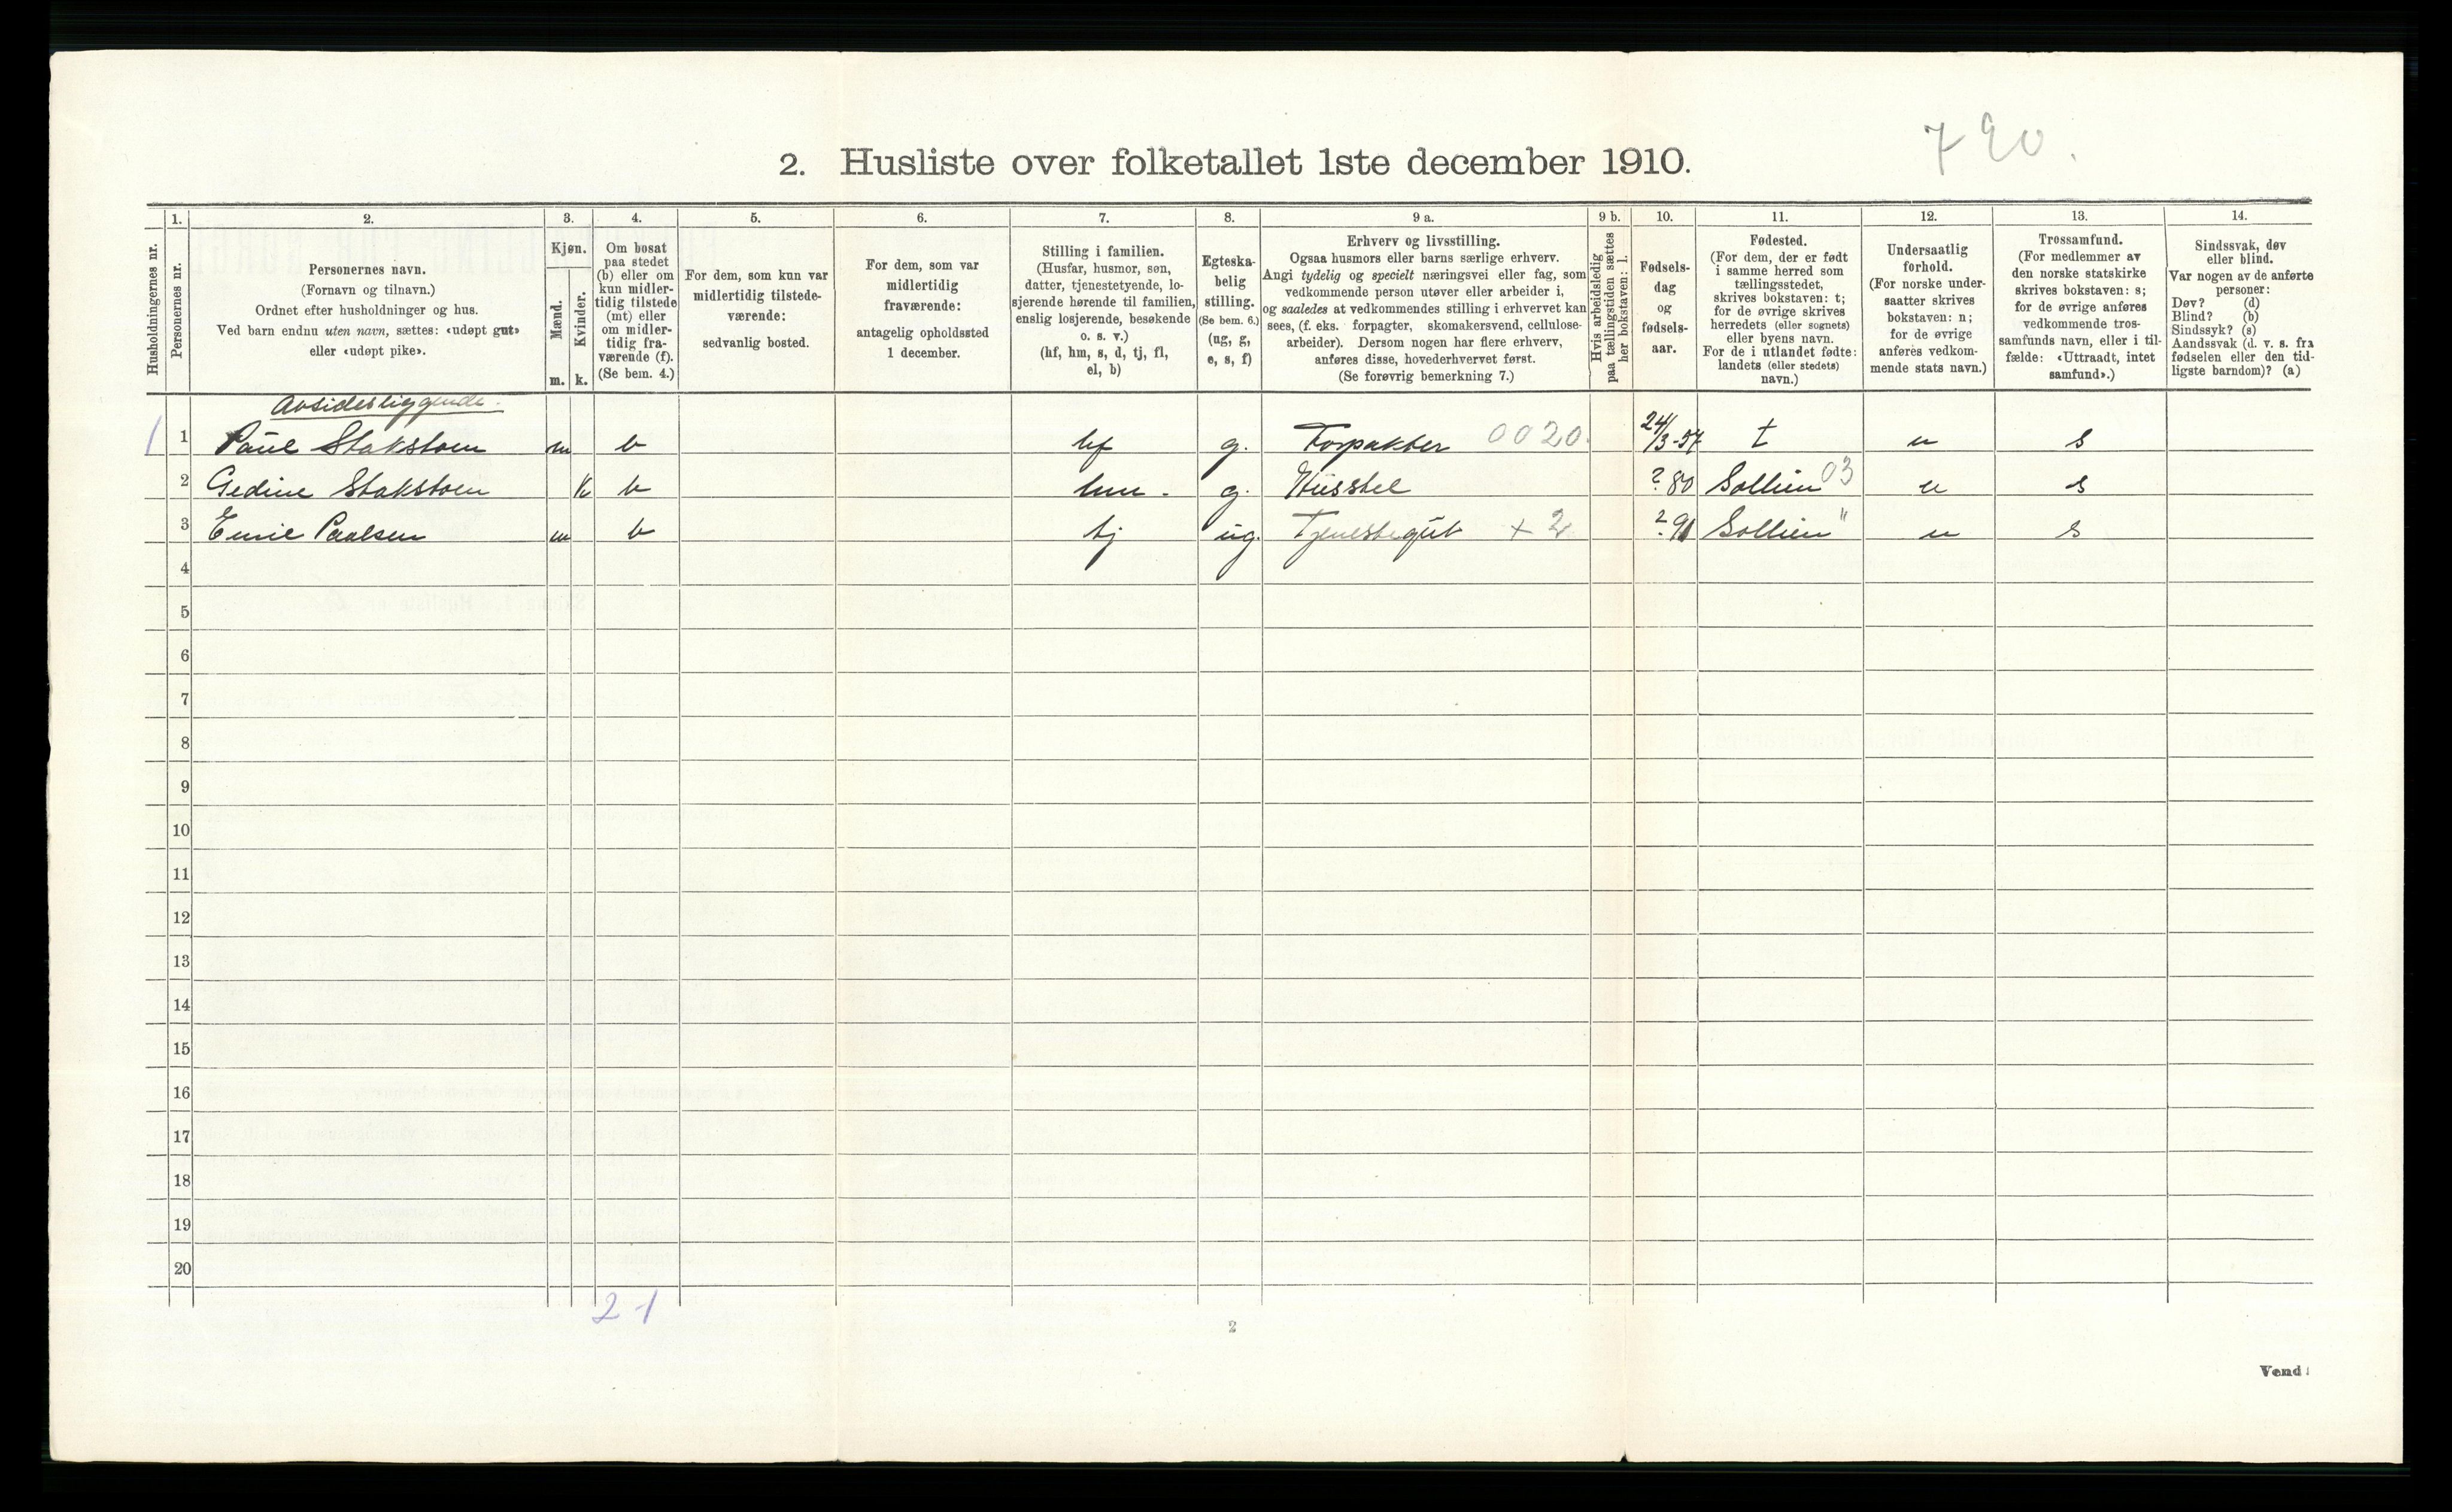 790.
2. Husliste over folketallet 1ste december 1910.
Husholdningernes nr.
1.
Personernes nr.
2.
Personernes navn.
(Fornavn og tilnavn.)
Ordnet efter husholdninger og hus.
Ved barn endnu uten navn, sættes: «udøpt gut»
eller «udøpt pike».
3.
Kjøn.
Mænd.
m.
Kvinder.
k.
4.
Om bosat
paa stedet
(b) eller om
kun midler-
tidig tilstede
(mt) eller
om midler-
tidig fra-
værende (f).
(Se bem. 4.)
5.
For dem, som kun var
midlertidig tilstede-
værende:
sedvanlig bosted.
6.
For dem, som var
midlertidig
fraværende:
antagelig opholdssted
1 december.
7.
Stilling i familien.
(Husfar, husmor, søn,
datter, tjenestetyende, lo-
sjerende hørende til familien,
enslig losjerende, besøkende
o. s. v.)
(hf, hm, s, d, tj, fl,
el, b)
8.
Egteska-
belig
stilling.
(Se bem. 6.)
(ug, g,
e, s, f)
9 a.
Erhverv og livsstilling.
Ogsaa husmors eller barns særlige erhverv.
Angi tydelig og specielt næringsvei eller fag, som
vedkommende person utøver eller arbeider i,
og saaledes at vedkommendes stilling i erhvervet kan
sees, (f. eks. forpagter, skomakersvend, cellulose-
arbeider). Dersom nogen har flere erhverv,
anføres disse, hovederhvervet først.
(Se forøvrig bemerkning 7.)
9 b.
Hvis arbeidsledig
paa tællingstiden sættes
her bokstaven: l.
10.
Fødsels-
dag
og
fødsels-
aar.
11.
Fødested.
(For dem, der er født
i samme herred som
tællingsstedet,
skrives bokstaven: t;
for de øvrige skrives
herredets (eller sognets)
eller byens navn.
For de i utlandet fødte:
landets (eller stedets)
navn.)
12.
Undersaatlig
forhold.
(For norske under-
saatter skrives
bokstaven: n;
for de øvrige
anføres vedkom-
mende stats navn.)
13.
Trossamfund.
(For medlemmer av
den norske statskirke
skrives bokstaven: s;
for de øvrige anføres
vedkommende tros-
samfunds navn, eller i til-
fælde: «Uttraadt, intet
samfund».)
14.
Sindssvak, døv
eller blind.
Var nogen av de anførte
personer:
Døv? (d)
Blind? (b)
Sindssyk? (s)
Aandssvak (d. v. s. fra
fødselen eller den tid-
ligste barndom)? (a)
Avsidesliggende.
1 1 Paul Stakstoen m b hf g. Forpakter 0020. 24/3-57 t n s
2 Gedine Stakstoen k b hm - g. Husstel ? 80 Sollien 03 n s
3 Emil Paalsen m b tj ug. Tjenestegut + 2 ? 91 Sollien " n s
4
5
6
7
8
9
10
11
12
13
14
15
16
17
18
19
20
2 1
2
Vend!